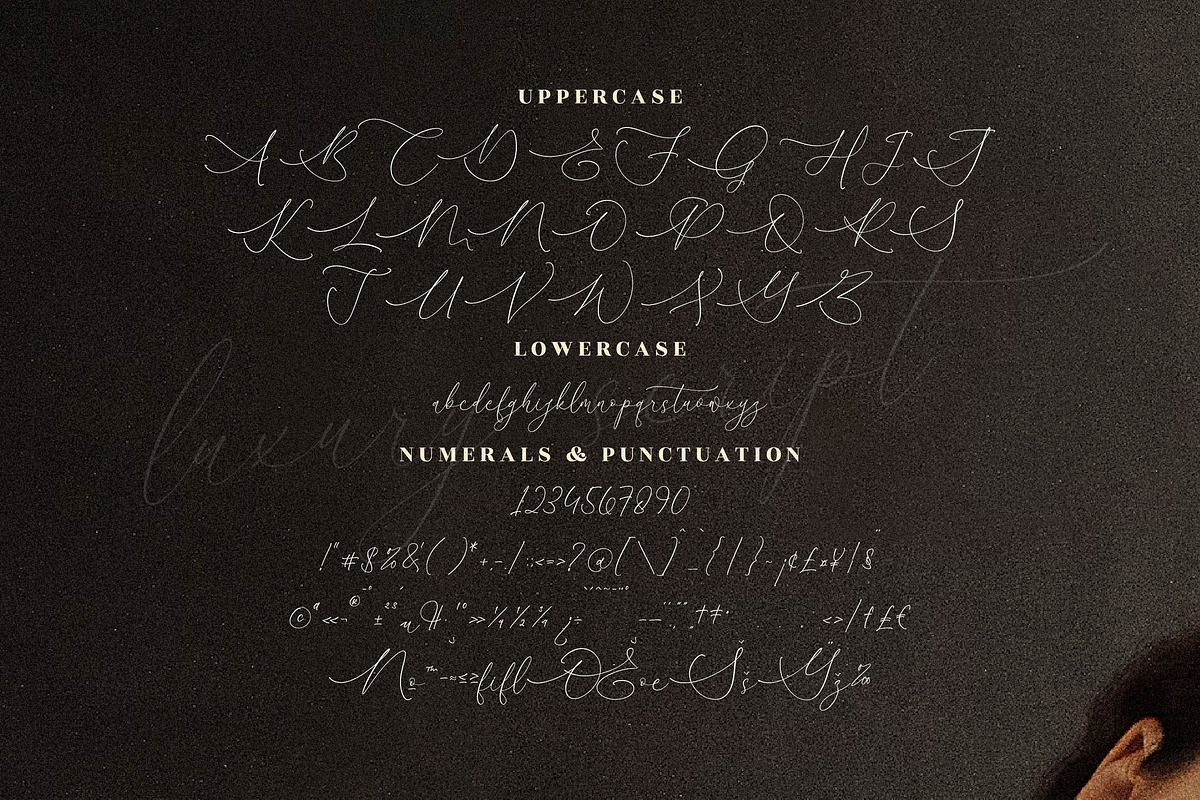 UPPERCASE
A B C D E F G H I J
K L M N O P Q R S
T U V W X Y Z
LOWERCASE
luxury script
abcdefghijklmnopqrstuvwxyz
NUMERALS & PUNCTUATION
1234567890
!"#$%&'()*+,-./:;<=>?@[\]^_`{|}~¡¢£¤¥¦§¨
©ª«¬®¯°±²³´µ¶·¸¹º»¼½¾¿÷
№™−≈≤≥fifl ŒœŠšŸž‰